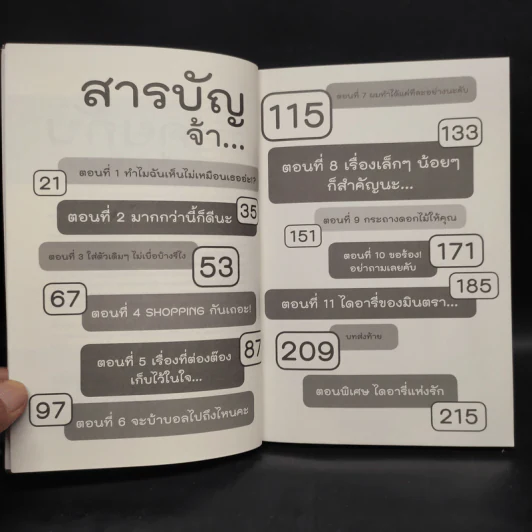 สารบัญ
จ้า...
ตอนที่ 1 ทำไมฉันเห็นไม่เหมือนเธออ่ะ!?
21
ตอนที่ 2 มากกว่านี้ก็ดีนะ
35
ตอนที่ 3 ใส่ตัวเดิมๆ ไม่เบื่อบ้างรึไง
53
67
ตอนที่ 4 SHOPPING กันเถอะ!
ตอนที่ 5 เรื่องที่ต่องต๊อง
เก็บไว้ในใจ...
87
97
ตอนที่ 6 จะบ้าบอลไปถึงไหนคะ
ตอนที่ 7 ผมทำได้แค่ทีละอย่างนะคับ
115
133
ตอนที่ 8 เรื่องเล็กๆ น้อยๆ
ก็สำคัญนะ...
ตอนที่ 9 กระถางดอกไม้ให้คุณ
151
ตอนที่ 10 ขอร้อง!
อย่าถามเลยคับ
171
185
ตอนที่ 11 ไดอารี่ของมินตรา...
บทส่งท้าย
209
ตอนพิเศษ ไดอารี่แห่งรัก
215